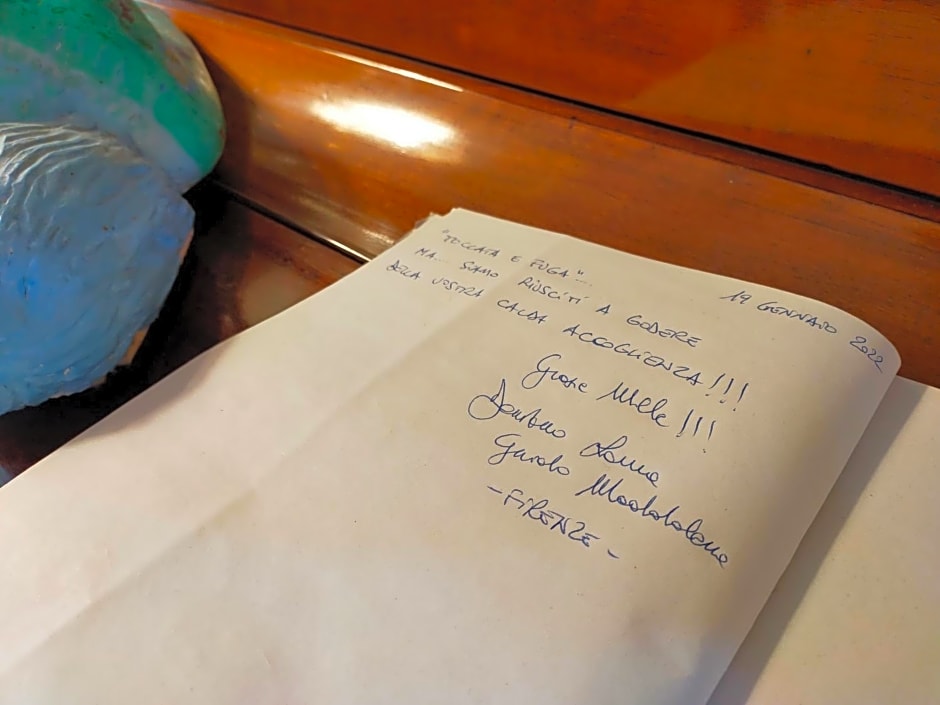 19 GENNAIO 2022
"TOCCATA E FUGA"...
MA... SIAMO RIUSCITI A GODERE
DELLA VOSTRA CALDA ACCOGLIENZA!!!
Grazie Mille!!!
Maddalena
- FIRENZE -